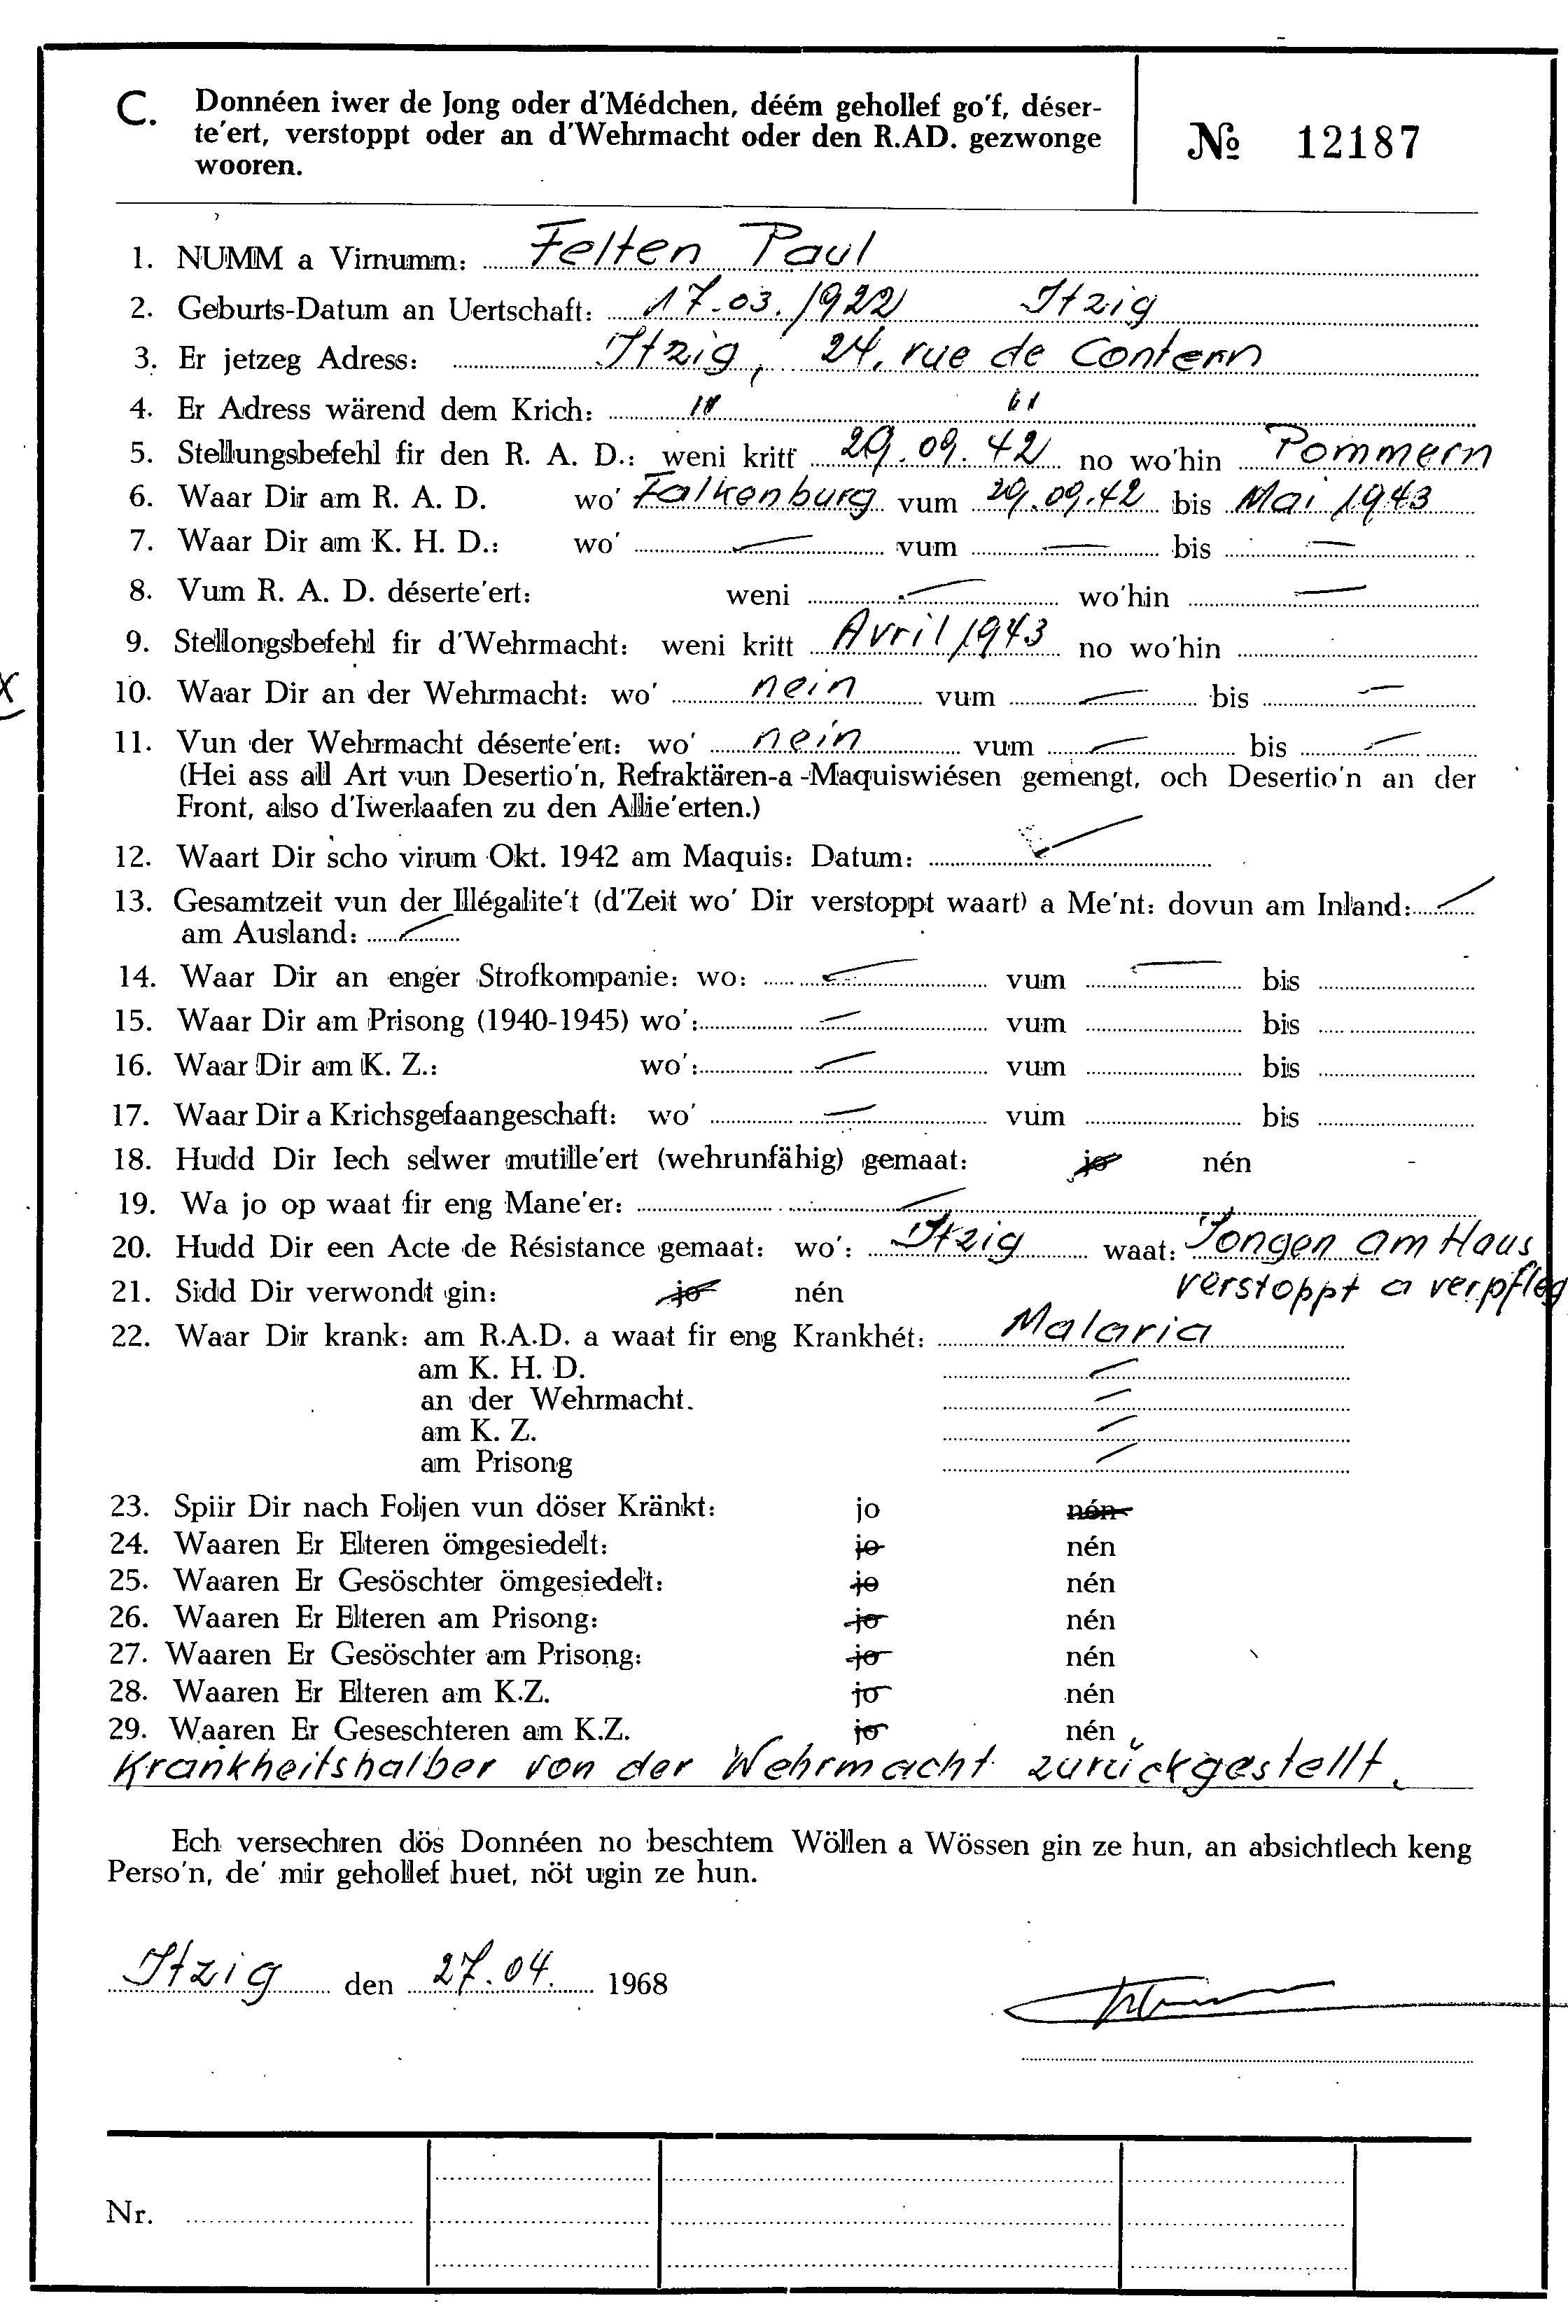 C. Donnéen iwer de Jong oder d'Médchen, déém gehollef go'f, déser-
te'ert, verstoppt oder an d'Wehrmacht oder den R.AD. gezwonge
wooren.
№ 12187
1. NUMM a Virnumm: Felten Paul
2. Geburts-Datum an Uertschaft: 17.03.1922 Itzig
3. Er jetzeg Adress: Itzig, 24, rue de Contern
4. Er Adress wärend dem Krich: " "
5. Stellungsbefehl fir den R. A. D.: weni kritt 29.09.42 no wo'hin Pommern
6. Waar Dir am R. A. D. wo' Falkenburg vum 29.09.42 bis Mai 1943
7. Waar Dir am K. H. D.: wo' — vum — bis —
8. Vum R. A. D. déserte'ert: weni — wo'hin —
9. Stellongsbefehl fir d'Wehrmacht: weni kritt Avril 1943 no wo'hin
x
10. Waar Dir an der Wehrmacht: wo' nein vum — bis —
11. Vun der Wehrmacht déserte'ert: wo' nein vum — bis —
(Hei ass all Art vun Desertio'n, Refraktären-a -Maquiswiésen gemengt, och Desertio'n an der
Front, also d'Iwerlaafen zu den Allie'erten.)
12. Waart Dir scho virum Okt. 1942 am Maquis: Datum: —
13. Gesamtzeit vun der Illégalite't (d'Zeit wo' Dir verstoppt waart) a Me'nt: dovun am Inland: —
am Ausland: —
14. Waar Dir an enger Strofkompanie: wo: — vum — bis
15. Waar Dir am Prisong (1940-1945) wo': — vum bis
16. Waar Dir am K. Z.: wo': — vum bis
17. Waar Dir a Krichsgefaangeschaft: wo' — vum bis
18. Hudd Dir Iech selwer mutille'ert (wehrunfähig) gemaat: jo nén
19. Wa jo op waat fir eng Mane'er: —
20. Hudd Dir een Acte de Résistance gemaat: wo': Itzig waat: Jongen am Haus
verstoppt a verpfleg
21. Sidd Dir verwondt gin: jo nén
22. Waar Dir krank: am R.A.D. a waat fir eng Krankhét: Malaria
am K. H. D. —
an der Wehrmacht. —
am K. Z. —
am Prisong —
23. Spiir Dir nach Foljen vun döser Kränkt: jo nén
24. Waaren Er Elteren ömgesiedelt: jo nén
25. Waaren Er Gesöschter ömgesiedelt: jo nén
26. Waaren Er Elteren am Prisong: jo nén
27. Waaren Er Gesöschter am Prisong: jo nén
28. Waaren Er Elteren am K.Z. jo nén
29. Waaren Er Geseschteren am K.Z. jo nén
Krankheitshalber von der Wehrmacht zurückgestellt.
Ech versechren dös Donnéen no beschtem Wöllen a Wössen gin ze hun, an absichtlech keng
Perso'n, de' mir gehollef huet, nöt ugin ze hun.
Itzig den 27.04. 1968
Nr.